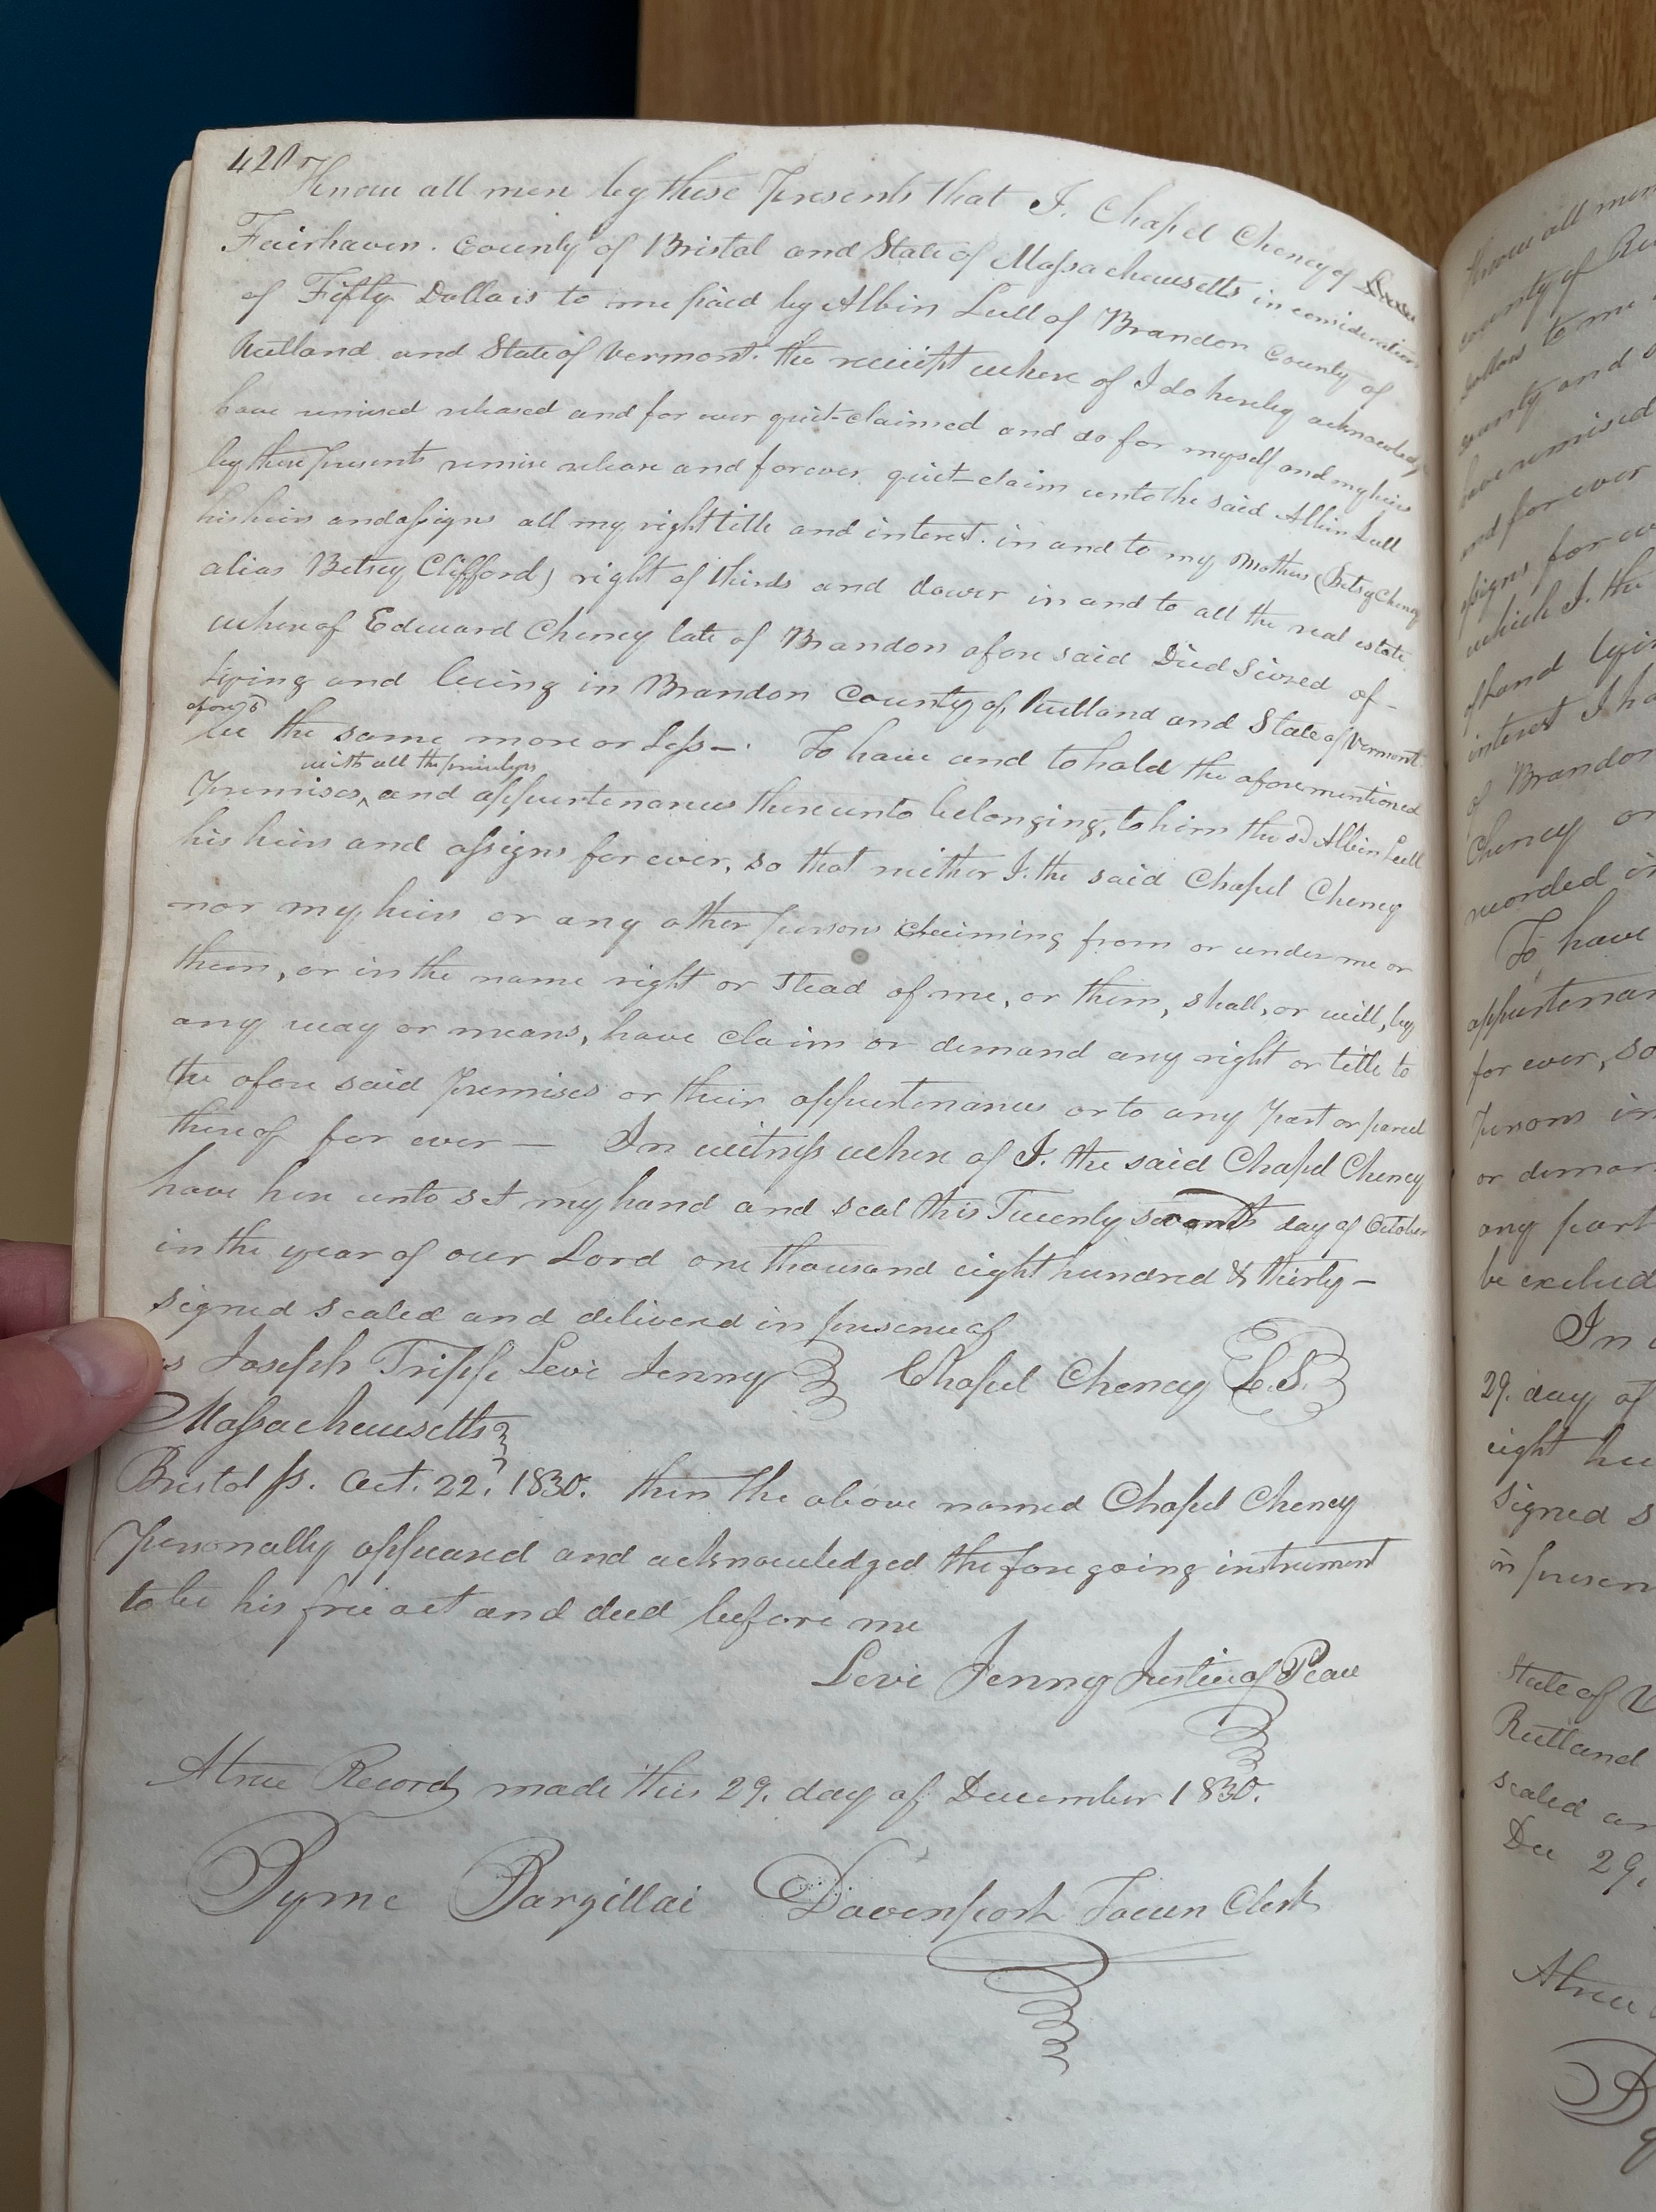 420
Know all men by these Presents that I. Chapel Cheney of
Fairhaven. County of Bristol and State of Massachusetts in consideration
of Fifty Dollars to me paid by Albin Lull of Brandon County of
Rutland and State of Vermont. the receipt where of I do hereby acknowledge
have remised released and for ever quit-claimed and do for myself and my heirs
by these presents remise release and forever quit-claim unto the said Albin Lull
his heirs and assigns all my right title and interest. in and to my Mothers (Betsy Cheney
alias Betsey Clifford) right of thirds and dower in and to all the real estate
where of Edward Cheney late of Brandon afore said Died Siezed of-
lying and being in Brandon County of Rutland and State of Vermont
afores'd
be the same more or less-. To have and to hold the aforementioned
with all the privileges
Premises, ^ and appurtenances thereunto belonging, to him the sd Albin Lull
his heirs and assigns for ever, so that neither I. the said Chapel Cheney
nor my heirs or any other persons claiming from or under me or
them, or in the name right or stead of me, or them, shall, or will, by
any way or means, have claim or demand any right or title to
the afore said premises or their appurtenances or to any part or parcel
thereof for ever - In witness where of I. the said Chapel Cheney
have here unto set my hand and seal this Twenty seventh day of October
in the year of our Lord one thousand eight hundred & thirty-
signed sealed and delivered in presence of
Joseph Tripp Levi Jenny Chapel Cheney L.S.
Massachusetts
Bristol ss. Oct. 22, 1830. then the above named Chapel Cheney
Personally appeared and acknowledged the fore going instrument
to be his free act and deed before me
Levi Jenny Justice of Peace
A true Record made this 29. day of December 1830.
Pyme Barzillai Davenport Town Clerk
Know all men
county of Ru
Dollars to me
county and
have remised
and for ever
assigns for ev
which I. the
of land lyin
interest I ha
of Brandon
Cheney or
recorded in
To have
appurtenan
for ever, so
persons in
or deman
any part
be exclud
In
29. day of
eight hu
Signed s
in presen
State of V
Rutland
sealed an
Dec 29,
A true